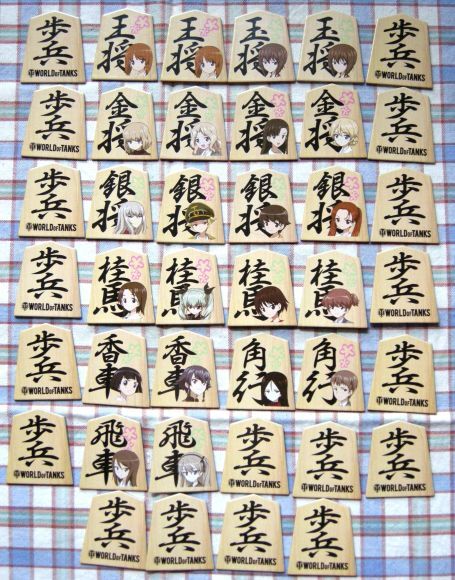 歩兵 王将 王将 玉将 玉将 歩兵
WORLD OF TANKS WORLD OF TANKS
歩兵 金将 金将 金将 金将 歩兵
WORLD OF TANKS WORLD OF TANKS
歩兵 銀将 銀将 銀将 銀将 歩兵
WORLD OF TANKS WORLD OF TANKS
歩兵 桂馬 桂馬 桂馬 桂馬 歩兵
WORLD OF TANKS WORLD OF TANKS
歩兵 香車 香車 角行 角行 歩兵
WORLD OF TANKS WORLD OF TANKS
歩兵 飛車 飛車 歩兵 歩兵 歩兵
WORLD OF TANKS WORLD OF TANKS WORLD OF TANKS WORLD OF TANKS
歩兵 歩兵 歩兵 歩兵
WORLD OF TANKS WORLD OF TANKS WORLD OF TANKS WORLD OF TANKS